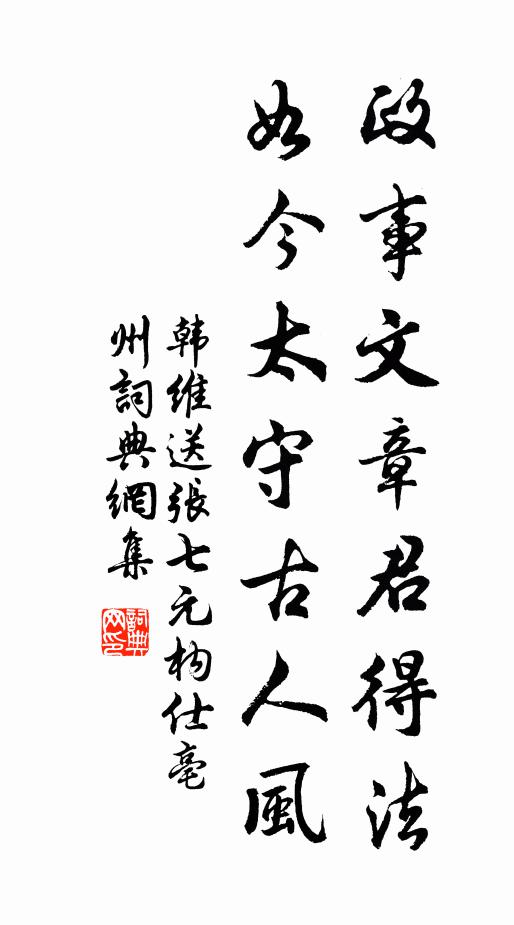 政事文章君得法
如今太守古人風
韩維送張七元构仕亳
州詞典網集
詞典網印